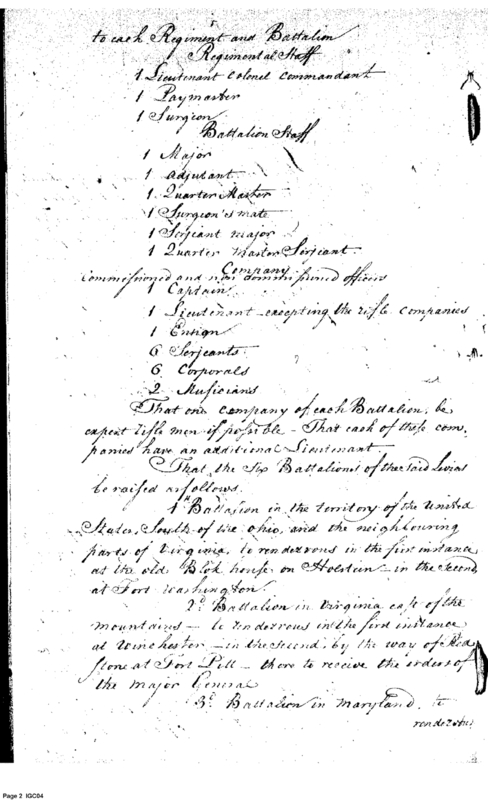 to each Regiment and Battalion
Regimental Staff
1 Lieutenant Colonel Commandant
1 Paymaster
1 Surgeon
Battalion Staff
1 Major
1 Adjutant
1 Quarter Master
1 Surgeon's mate
1 Serjeant Major
1 Quarter Master Serjeant
Company
Commissioned and non commissioned officers
1 Captain
1 Lieutenant excepting the rifle companies
1 Ensign
6 Serjeants
6 Corporals
2 Musicians
That one company of each Battalion, be
expert rifle men if possible – That each of these com-
panies have an additional Lieutenant
That the Six Battalions of the said Levies
be raised as follows
1st Battalion in the territory of the United
States, South of the Ohio, and the neighbouring
parts of Virginia, to rendezvous in the first instance
at the old Blok house on Holstein – in the second,
at Fort Washington.
2d Battalion in Virginia east of the
mountains – to rendezvous in the first instance
at Winchester – in the second, by the way of Red
stone at Fort Pitt – there to receive the orders of
the Major General
3d Battalion in Maryland, to
rendezvous
Page 2 IGC04